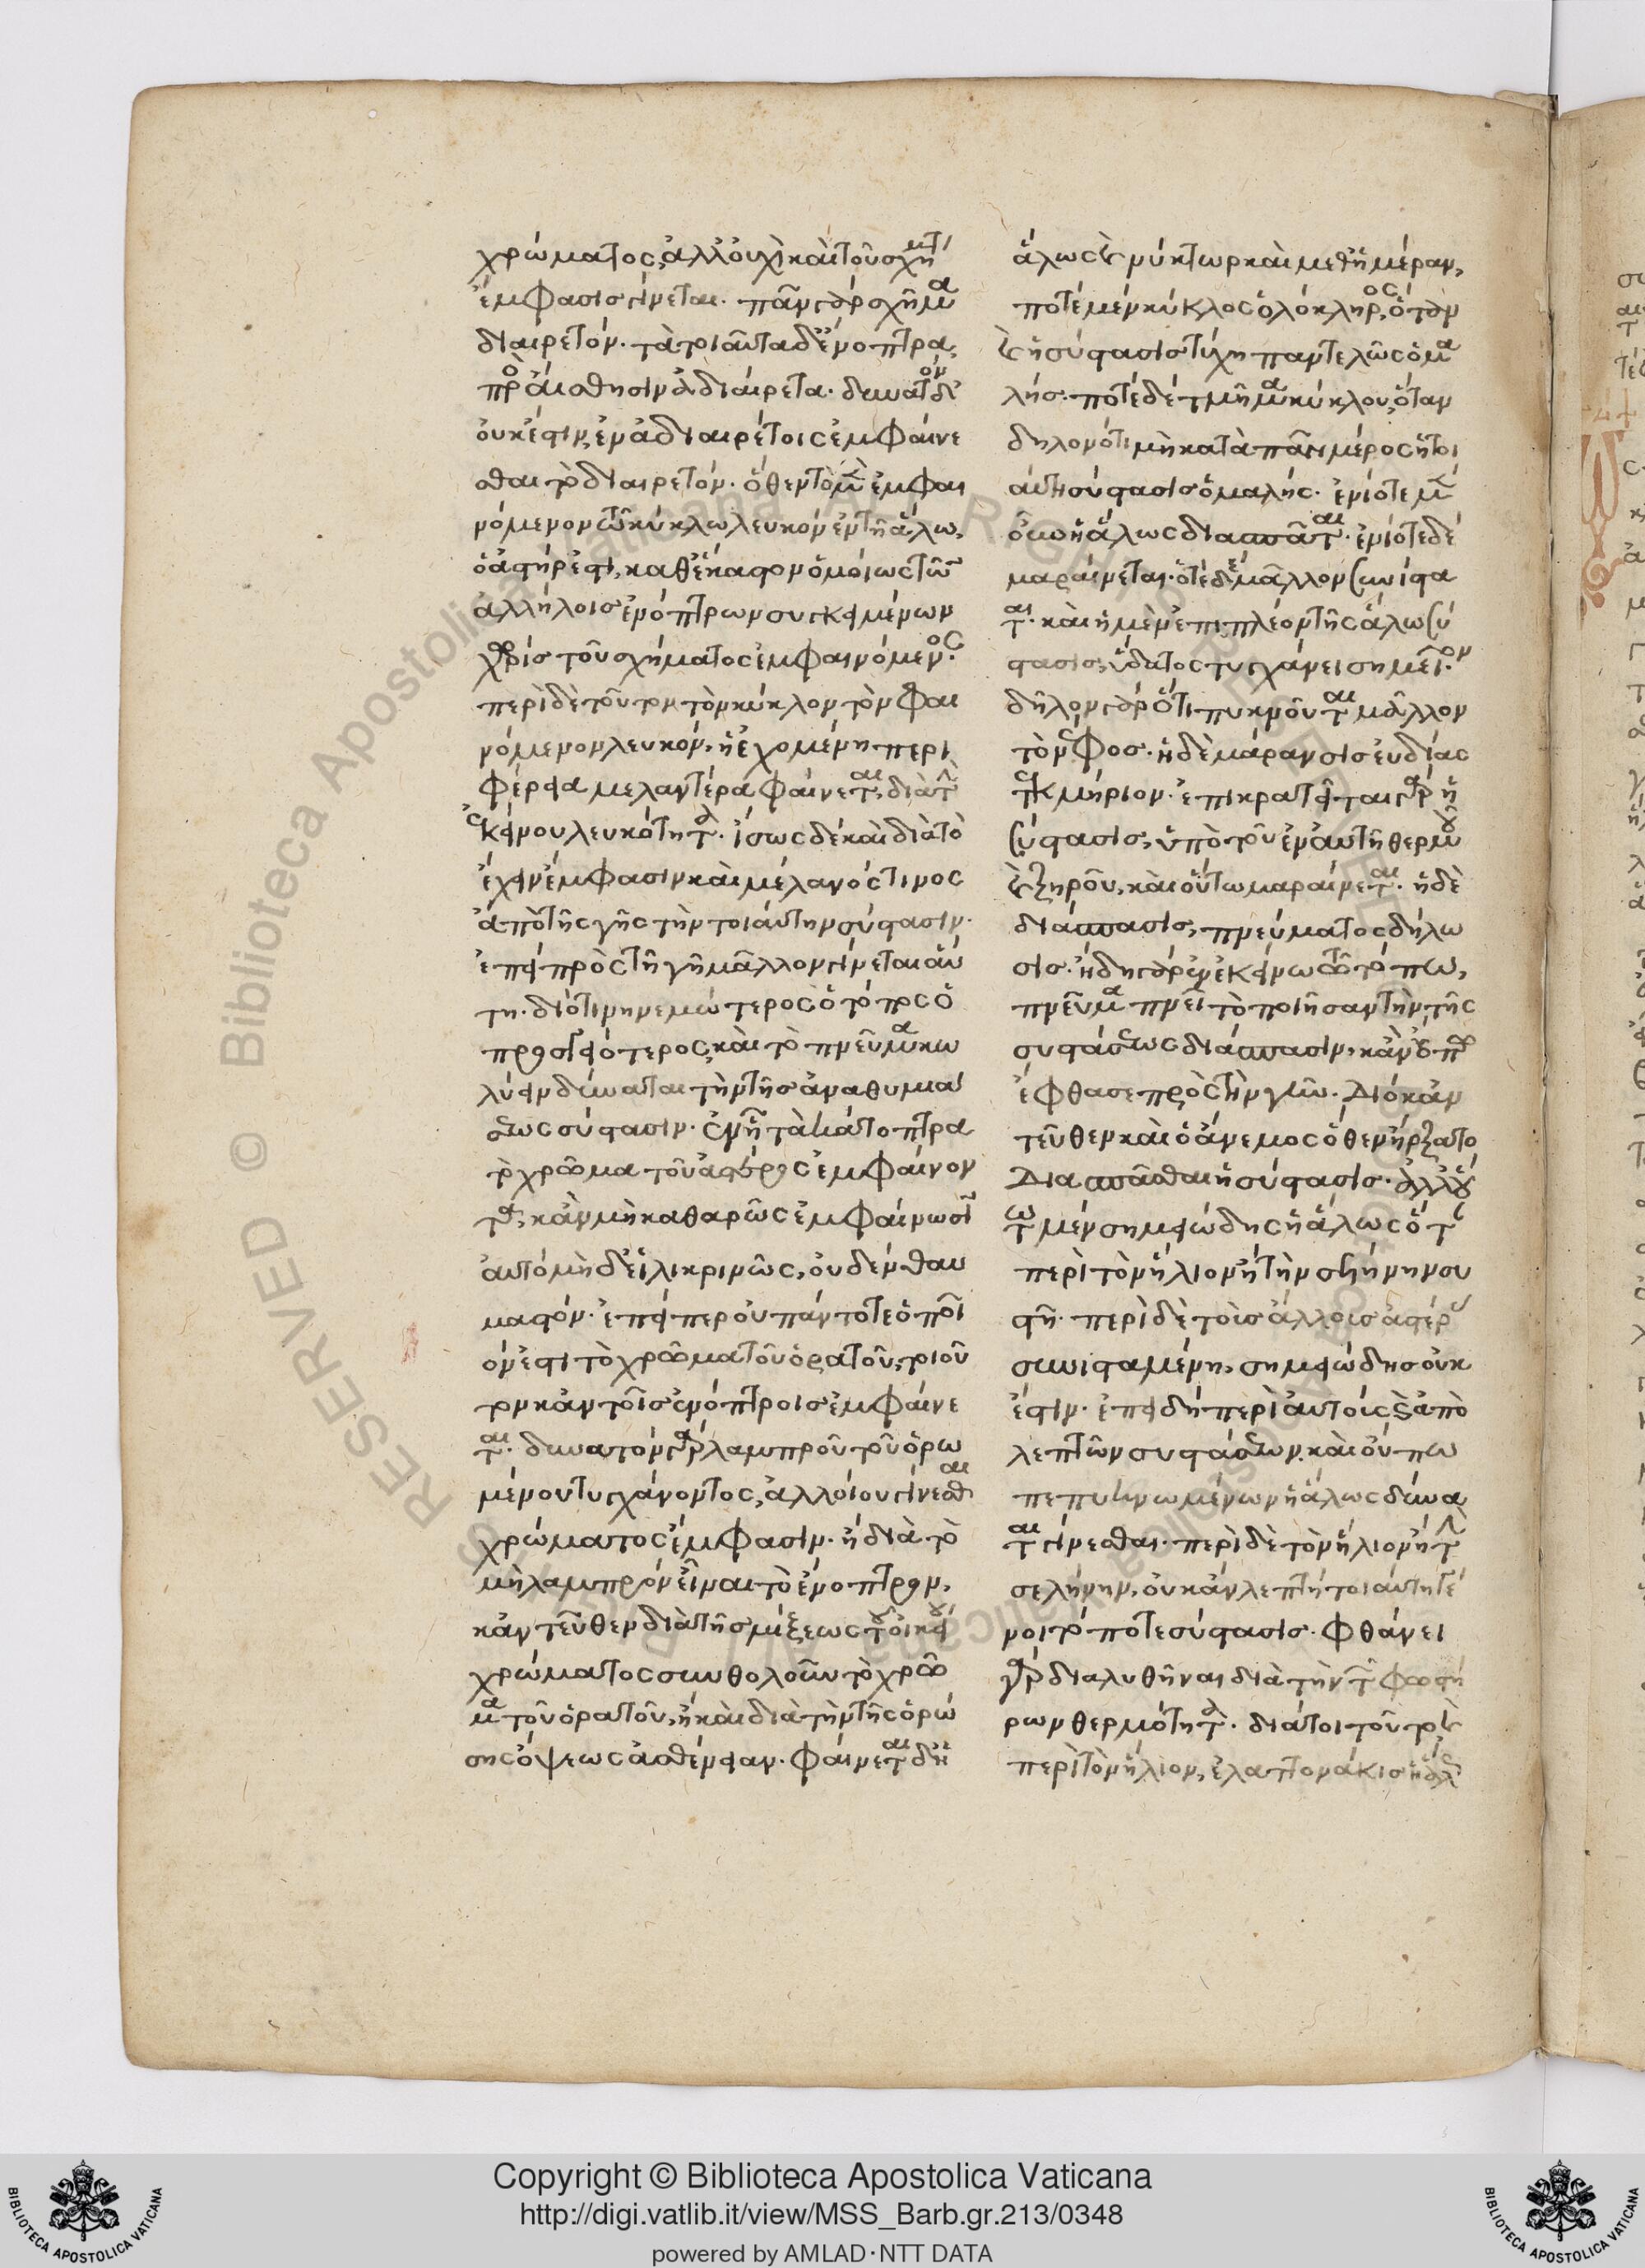 χρώματος, ἀλλ' οὐχὶ καὶ τοῦ σχήματι
ἔμφασις γίνεται. πᾶν γὰρ σχῆμα
διαιρετόν. τὰ τοιαῦτα δ' ἔνοπτρα,
πρὸς αἴσθησιν ἀδιαίρετα. δυνατὸν δ'
οὐκ ἔστιν, ἐν ἀδιαιρέτοις ἐμφαίνε
σθαι τὸ διαιρετόν. ὅθεν τὸ μὲν ἐμφαι
νόμενον τῶ κύκλω λευκὸν ἐν τῆ ἅλω,
ὁ ἀστήρ ἐστι, καθ' ἕκαστον ὁμοίως τῶν
ἀλλήλοις ἐνόπτρων συγκειμένων
χωρὶς τοῦ σχήματος ἐμφαινόμενος.
περὶ δὲ τοῦτον τὸν κύκλον τὸν φαι
νόμενον λευκόν, ἡ ἐχομένη περι
φέρεια μελαντέρα φαίνεται, διὰ τὴν
ἐκείνου λευκότητα. ἴσως δὲ καὶ διὰ τὸ
ἔχειν ἔμφασιν καὶ μέλανός τινος
ἀπὸ τῆς γῆς τὴν τοιαύτην σύστασιν.
ἐπεὶ πρὸς τῆ γῆ μᾶλλον γίνεται αὕ
τη. διότι νηνεμώτερος ὁ τόπος ὁ
προσγειότερος, καὶ τὸ πνεῦμα κω
λύειν δύναται τὴν τῆς ἀναθυμιά
σεως σύστασιν. εἰ μὴ τὰ κάτοπτρα
τὸ χρῶμα τοῦ ἀστέρος ἐμφαίνον
τα, κἂν μὴ καθαρῶς ἐμφαίνωσι
αὐτὸ μὴ δ' εἰλικρινῶς, οὐδὲν θαυ
μαστόν. ἐπείπερ οὐ πάντοτε ὁποῖ
όν ἐστι τὸ χρῶμα τοῦ ὁρατοῦ, τοιοῦ
τον κἀν τοῖς ἐνόπτροις ἐμφαίνε
ται. δυνατὸν γὰρ λαμπροῦ τοῦ ὁρω
μένου τυγχάνοντος, ἀλλοίου γίνεσθαι
χρώματος ἔμφασιν. ἢ διὰ τὸ
μὴ λαμπρὸν εἶναι τὸ ἔνοπτρον,
κἀντεῦθεν διὰ τῆς μίξεως τοῦ οἰκείου
χρώματος συνθολοῦν τὸ χρῶ
μα τοῦ ὁρατοῦ, ἢ καὶ διὰ τὴν τῆς ὁρώ
σης ὄψεως ἀσθένειαν. φαίνεται δὲ ἡ
ἅλως καὶ νύκτωρ καὶ μεθ' ἡμέραν,
ποτὲ μὲν κύκλος ὁλόκληρος, ὅταν
καὶ ἡ σύστασις τύχη παντελῶς ὁμα
λής. ποτὲ δὲ τμῆμα κύκλου, ὅταν
δηλονότι μὴ κατὰ πᾶν μέρος ἤτοι
αὐτὴ σύστασις ὁμαλής. ἐνίοτε μὲν
οὖν ἡ ἅλως διασπᾶται. ἐνίοτε δὲ
μαραίνεται. ὁτὲ δὲ μᾶλλον συνίστα
ται. καὶ ἡ μὲν ἐπιπλέον τῆς ἅλω σύ
στασις, ὕδατος τυγχάνει σημεῖον.
δῆλον γὰρ ὅτι πυκνοῦται μᾶλλον
τὸ νέφος. ἡ δὲ μάρανσις εὐδίας
τεκμήριον. ἐπικρατεῖται γὰρ ἡ
σύστασις, ὑπὸ τοῦ ἐν αὐτῆ θερμοῦ
καὶ ξηροῦ, καὶ οὕτω μαραίνεται. ἡ δὲ
διάσπασις, πνεύματος δήλω
σις. ἤδη γὰρ ἐν ἐκείνω τῶ τόπω,
πνεῦμα πνεῖ τὸ ποιῆσαν τὴν τῆς
συστάσεως διάσπασιν, κἂν οὔπω
ἔφθασε πρὸς τὴν γῆν. διὸ κἀν
τεῦθεν καὶ ὁ ἄνεμος ὅθεν ἤρξατο
διασπᾶσθαι ἡ σύστασις. ἀλλ' οὕ
τω μὲν σημειώδης ἡ ἅλως ὅτε
περὶ τὸν ἥλιον ἢ τὴν σελήνην συ
στῆ. περὶ δὲ τοῖς ἄλλοις ἀστέρσι
συνισταμένη, σημειώδης οὐκ
ἔστιν. ἐπειδὴ περὶ αὐτοὺς καὶ ἀπὸ
λεπτῶν συστάσεων, καὶ οὔπω
πεπυκνωμένων ἡ ἅλως δύνα
ται γίνεσθαι. περὶ δὲ τὸν ἥλιον ἢ τὴν
σελήνην, οὐκ ἂν λεπτὴ τοιαύτη γέ
νοιτό ποτε σύστασις. φθάνει
γὰρ διαλυθῆναι διὰ τὴν τῶν φωστή
ρων θερμότητα. διά τοι τοῦτο καὶ
περὶ τὸν ἥλιον, ἐλαττονάκις ἢ
Copyright © Biblioteca Apostolica Vaticana
http://digi.vatlib.it/view/MSS_Barb.gr.213/0348
powered by AMLAD·NTT DATA
BIBLIOTECA APOSTOLICA VATICANA
BIBLIOTECA APOSTOLICA VATICANA